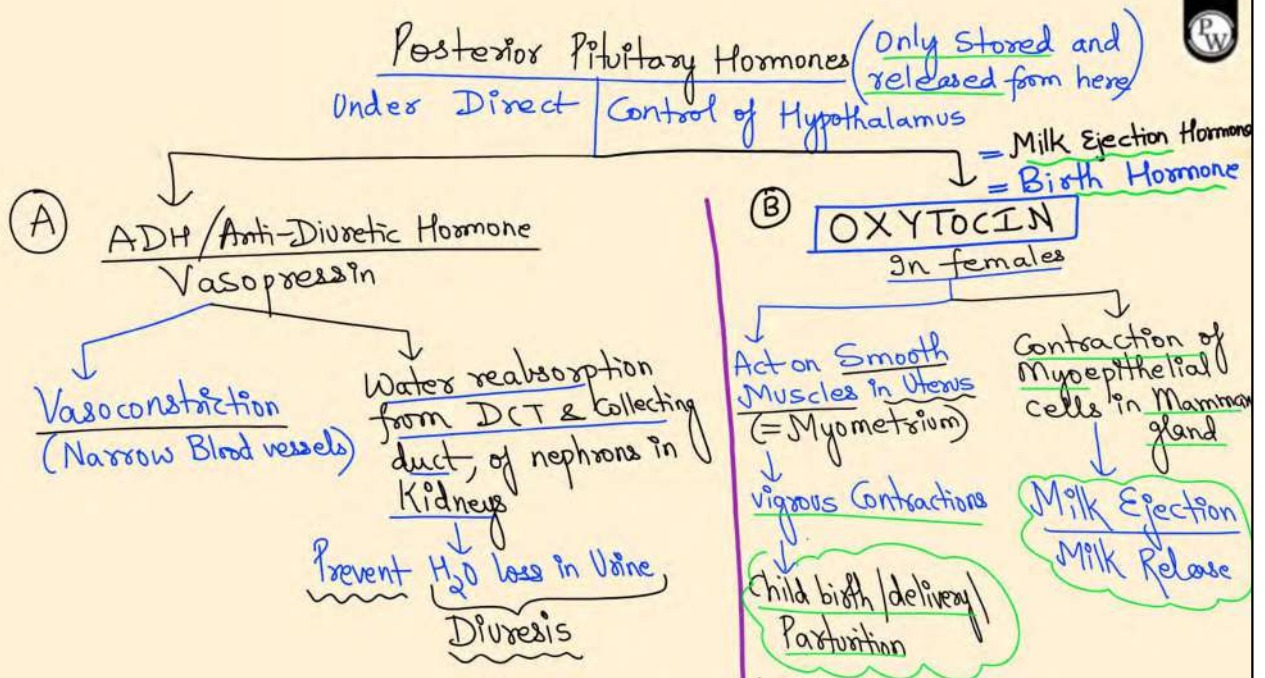 PW
Posterior Pituitary Hormones (Only Stored and
released from here)
Under Direct Control of Hypothalamus
= Milk Ejection Hormone
= Birth Hormone
A
ADH/Anti-Diuretic Hormone
Vasopressin
Vasoconstriction
(Narrow Blood vessels)
Water reabsorption
from DCT & Collecting
duct, of nephrons in
Kidneys
Prevent H₂O loss in Urine
Diuresis
B
OXYTOCIN
In females
Act on Smooth
Muscles in Uterus
(=Myometrium)
vigrous Contractions
Child birth/delivery/
Parturition
Contraction of
Myoepithelial
cells in Mammar
gland
Milk Ejection
Milk Relase